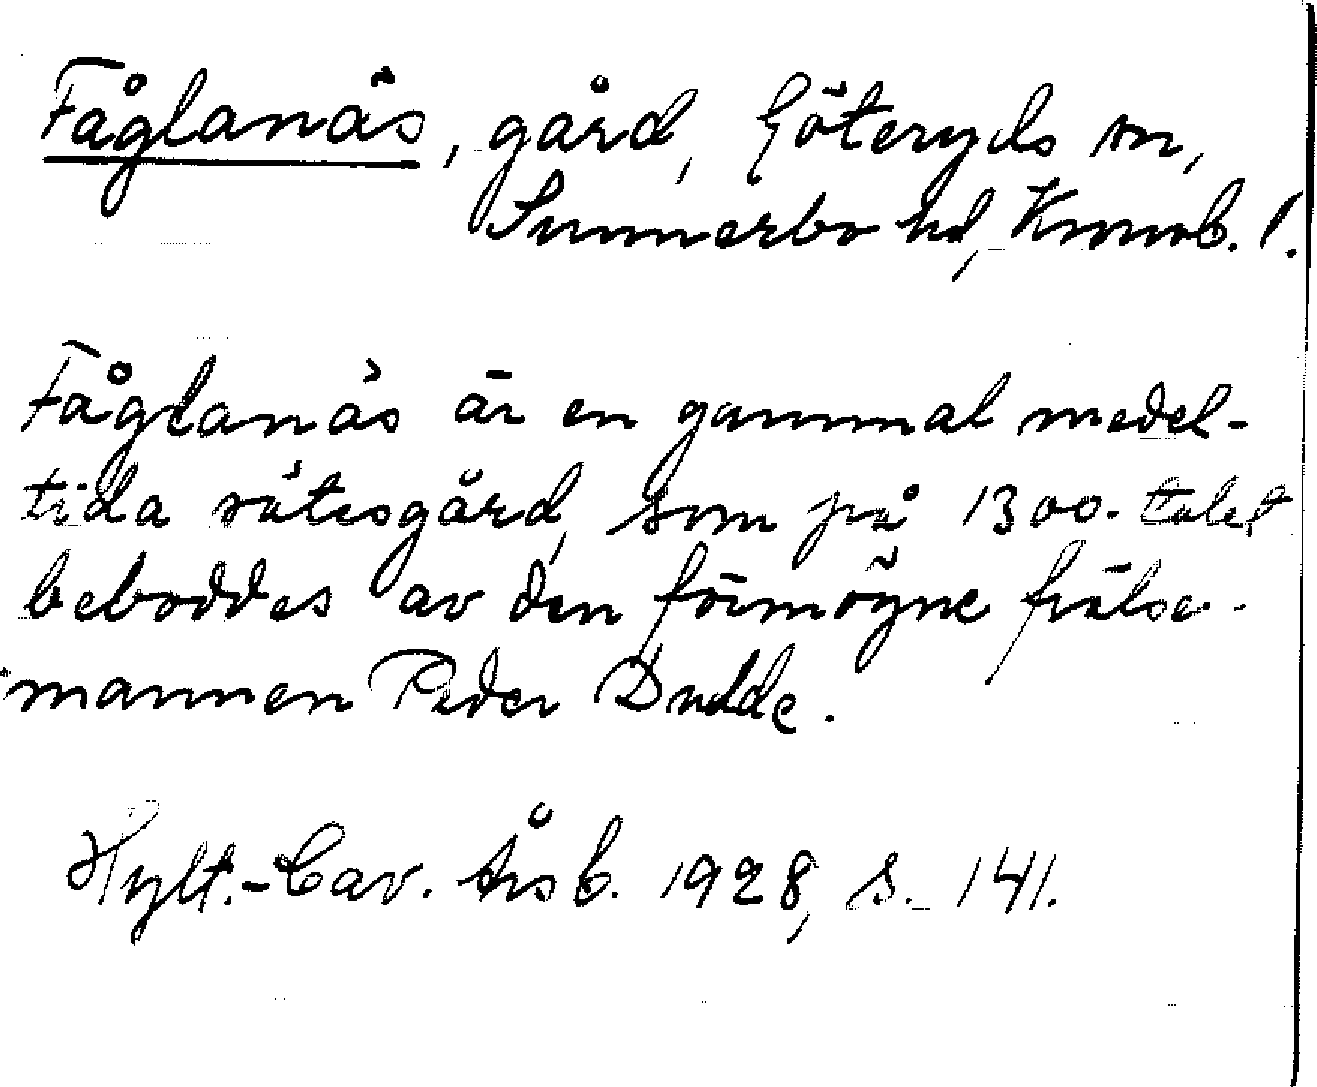 Fåglanäs, gård, Göteryds sn,
Sunnerbo hd, Kronob. l.
Fåglanäs är en gammal medel-
tida sätesgård, som på 1300-talet
beboddes av den förmögne frälse-
mannen Peder Dudde.
Hylt.-Cav. Årsb. 1928, s. 141.